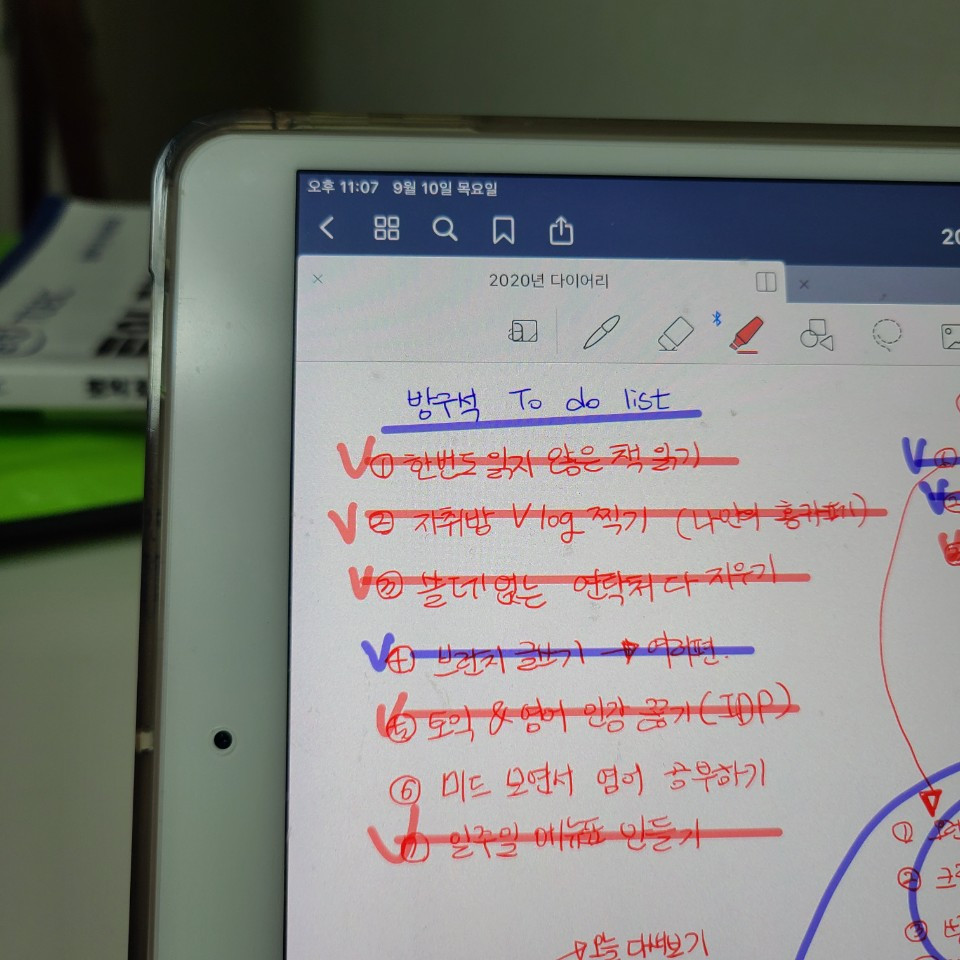 오후 11:07 9월 10일 목요일
20
2020년 다이어리
방구석 To do list
① 한번도 읽지 않은 책 읽기
② 자취방 Vlog 찍기 (나만의 홈카페)
③ 쓸데없는 연락처 다 지우기
④ 브런치 글쓰기 → 여러편.
⑤ 토익 & 영어 인강 끊기 (IDP)
⑥ 미드 보면서 영어 공부하기
⑦ 일주일 메뉴표 만들기
①
②
③
→ 오늘 다해보기